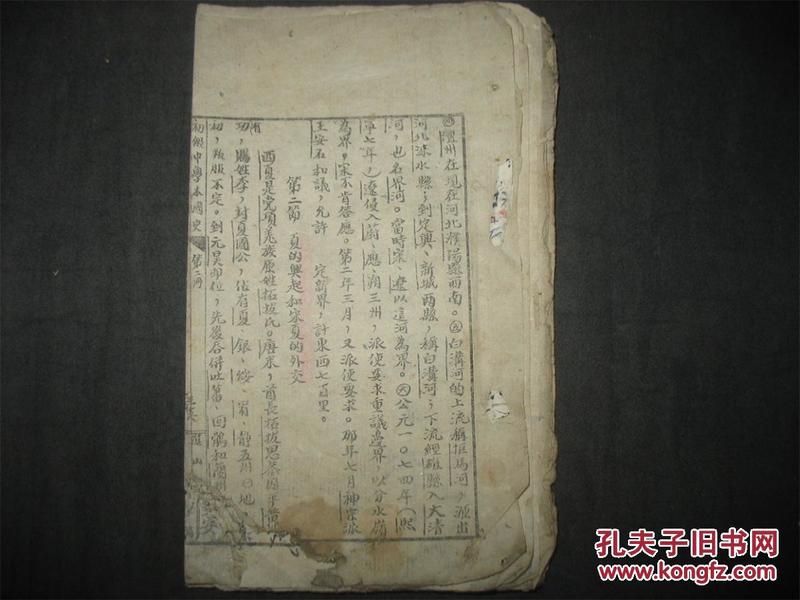 澶州在現在河北濮陽縣西南。白溝河的上流稱拒馬河，源出
河北淶水縣；到定興、新城西縣，稱白溝河；下流經雄縣入大清
河，也名界河。當時宋、遼以這河為界。公元一〇七四年（熙
寧七年），遼侵入蔚、應、朔三州，派使要求重議邊界，以分水嶺
為界。宋不肯答應。第二年三月，又派使要求。那年七月神宗派
王安石和議，允許 定新界，計東西七百里。
第二節 夏的興起和宋夏的外交
西夏是党項羌族原姓拓拔氏。唐末，酋長拓拔思恭因平黃
有功，賜姓李，封夏國公，佔有夏、銀、綏、宥、靜五州的地，
初，叛服不定。到元昊即位，先後吞併吐蕃、回鶻和
初級中學本國史 第二冊
孔夫子旧书网
www.kongfz.com